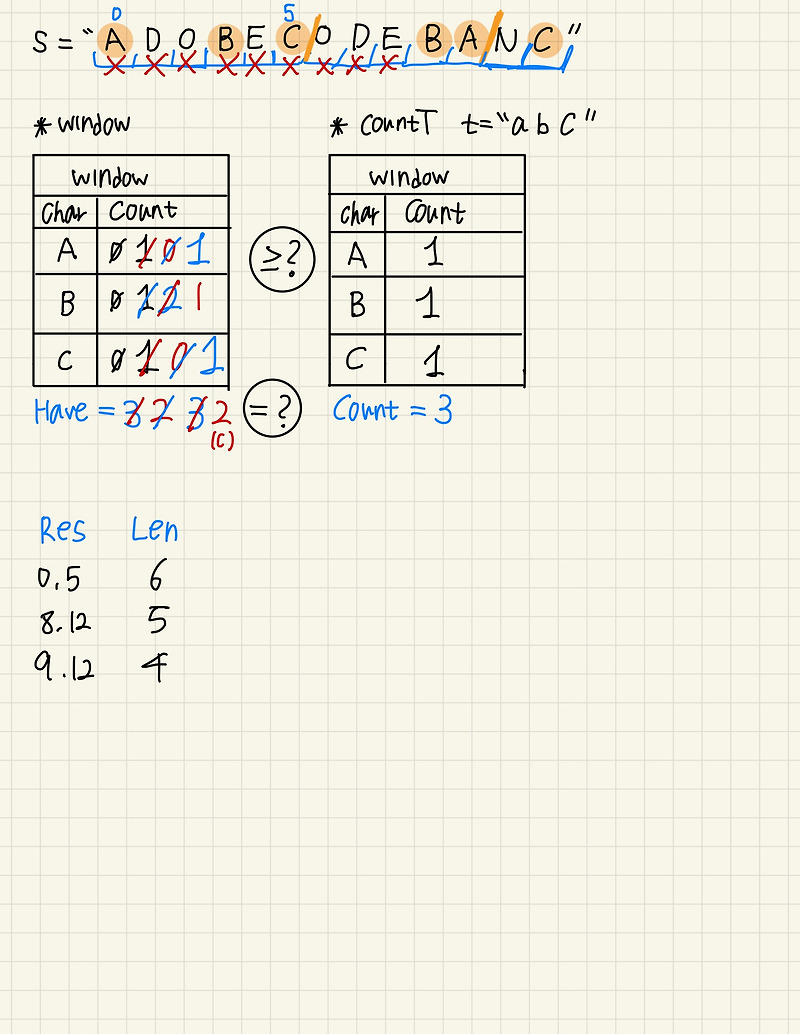 0 5
S = "A D O B E C O D E B A N C"
* window * countT t="a b c"
window window
Char Count char Count
A 0 1 0 1 ≥? A 1
B 0 1 2 1 B 1
C 0 1 0 1 C 1
Have = 3 2 3 2 =? Count = 3
(C)
Res Len
0.5 6
8.12 5
9.12 4